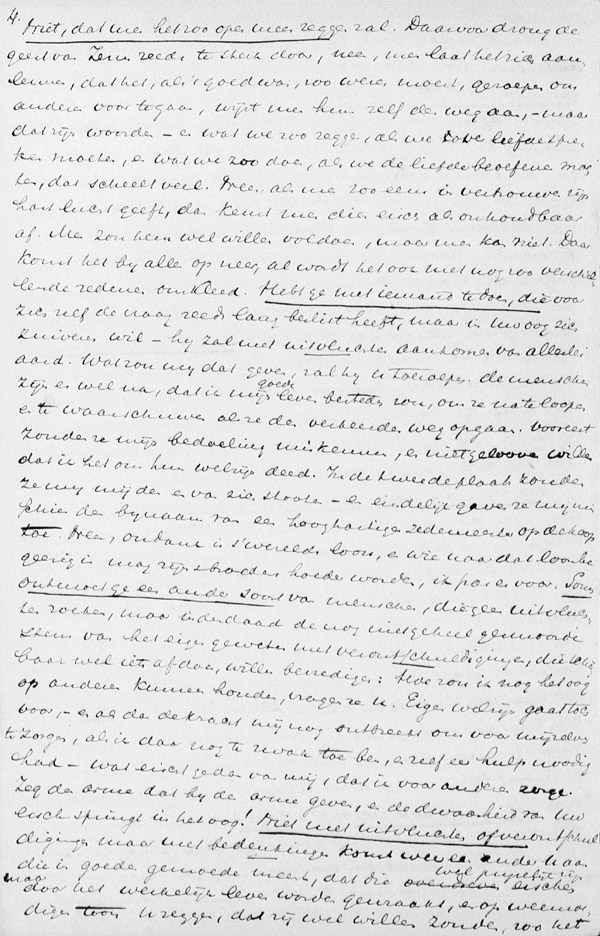 4.
Niet, dat men het zoo open mee zeggen zal. Daarvoor drong de
geest van Zem reeds te sterk door, nee, men laat het zich aan
leunen, dat het, als 't goed was, zoo wezen moest, geroepen om
anderen voor te gaan, wijst men hun zelf den weg aan, – maar
dat zijn woorden – en wat we zoo zeggen, als we over liefde spre
ken moeten, en wat we zoo doen, als we de liefde beoefenen moe
ten, dat scheelt veel. Neen, als men zoo eens in vertrouwen zijn
hart lucht geeft, dan keurt men dien eisch als onhoudbaar
af. Men zou hem wel willen voldoen, maar men kan niet. Daar
komt het bij allen op neer, al wordt het ook met nog zoo verschil
lende redenen omkleed. Hebt ge met iemand te doen, die voor
zich zelf de vraag reeds lang beslist heeft, maar in uw oog zich
zuiveren wil – hij zal met uitvluchten aankomen van allerlei
aard. Wat zou mij dat geven, zal hij u toeroepen. de menschen
zijn er wel na, dat ik mijn goede leven besteden zou, om ze na te loopen
en te waarschuwen als ze den verkeerden weg opgaan. Vooreerst
zouden ze mijn bedoeling miskennen, en niet gelooven willen
dat ik het om hun welzijn deed. In de tweede plaats zouden
ze mij mijden en van zich stooten – en eindelijk gaven ze mij mis
schien den bijnaam van een hooghartigen zedemeester op den koop
toe. Neen, ondank is 's werelds loon, en wie naar dat loon be
geerig is mag zijn broeders hoeder worden, ik pas er voor. Soms
ontmoet ge een ander soort van menschen, die geen uitvluch
ten zoeken, maar inderdaad de nog niet geheel gesmoorde
stem van het eigen geweten met verontschuldigingen, die schijn
baar wel iets afdoen, willen bevredigen: Hoe zou ik nog het oog
op anderen kunnen houden, vragen ze u. Eigen welzijn gaat toch
voor, – en als de kracht mij nog ontbreekt om voor mijzelven
te zorgen, als ik daar nog te zwak toe ben, en zelf een hulp noodig
had – wat eischt ge dan van mij, dat ik voor anderen zorge.
Zeg den arme dat hij den arme geven, en de dwaasheid van uw
eisch springt in het oog! Niet met uitvluchten of verontschul
digingen maar met bedenkingen komt weer een ander naar
die in goeden gemoede meent, dat die wel eischen
maar door het werkelijke leven worden gewraakt, en op weemoe
digen toon u zeggen, dat zij wel willen zouden, zoo het